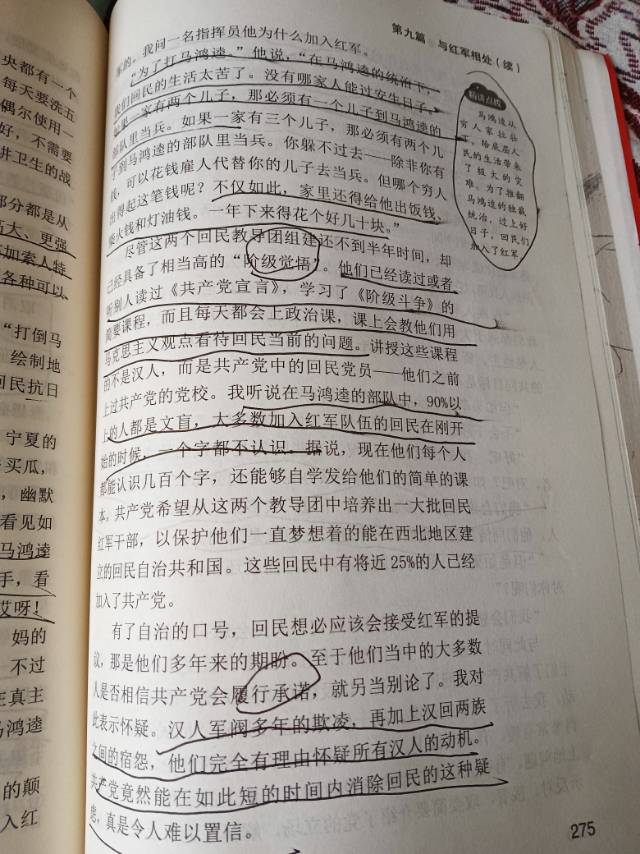 央都有一个
每天要洗五
偶尔使用一
好，不需要
讲卫生的战
部分都是从
高大、更强
不如索人特
各种可以
“打倒马
绘制地
回民抗日
宁夏的
买瓜，
，幽默
看见如
马鸿逵
手，看
哎呀！
妈的
不过
在真主
马鸿逵
的颠
入红
第九篇 与红军相处（续）
军的。我问一名指挥员他为什么加入红军。
“为了打马鸿逵。”他说，“在马鸿逵的统治下，
我们回民的生活太苦了。没有哪家人能过安生日子，
如果一家有两个儿子，那必须有一个儿子到马鸿逵的
部队里当兵。如果一家有三个儿子，那必须有两个儿
子到马鸿逵的部队里当兵。你躲不过去——除非你有
钱，可以花钱雇人代替你的儿子去当兵。但哪个穷人
出得起这笔钱呢？不仅如此，家里还得给他出饭钱、
柴火钱和灯油钱。一年下来得花个好几十块。”
尽管这两个回民教导团组建还不到半年时间，却
已经具备了相当高的“阶级觉悟”。他们已经读过或者
听别人读过《共产党宣言》，学习了《阶级斗争》的
简要课程，而且每天都会上政治课，课上会教他们用
马克思主义观点看待回民当前的问题。讲授这些课程
的不是汉人，而是共产党中的回民党员——他们之前
上过共产党的党校。我听说在马鸿逵的部队中，90%以
上的人都是文盲，大多数加入红军队伍的回民在刚开
始的时候，一个字都不认识。据说，现在他们每个人
都能认识几百个字，还能够自学发给他们的简单的课
本。共产党希望从这两个教导团中培养出一大批回民
红军干部，以保护他们一直梦想着的能在西北地区建
立的回民自治共和国。这些回民中有将近25%的人已经
加入了共产党。
有了自治的口号，回民想必应该会接受红军的提
议，那是他们多年来的期盼。至于他们当中的大多数
人是否相信共产党会履行承诺，就另当别论了。我对
此表示怀疑。汉人军阀多年的欺凌，再加上汉回两族
之间的宿怨，他们完全有理由怀疑所有汉人的动机。
共产党竟然能在如此短的时间内消除回民的这种疑
虑，真是令人难以置信。
马鸿逵从
穷人家拉壮
丁，给底层人
民的生活带来
了极大的灾
难。为了推翻
马鸿逵的独裁
统治，过上好
日子，回民们
加入了红军
275